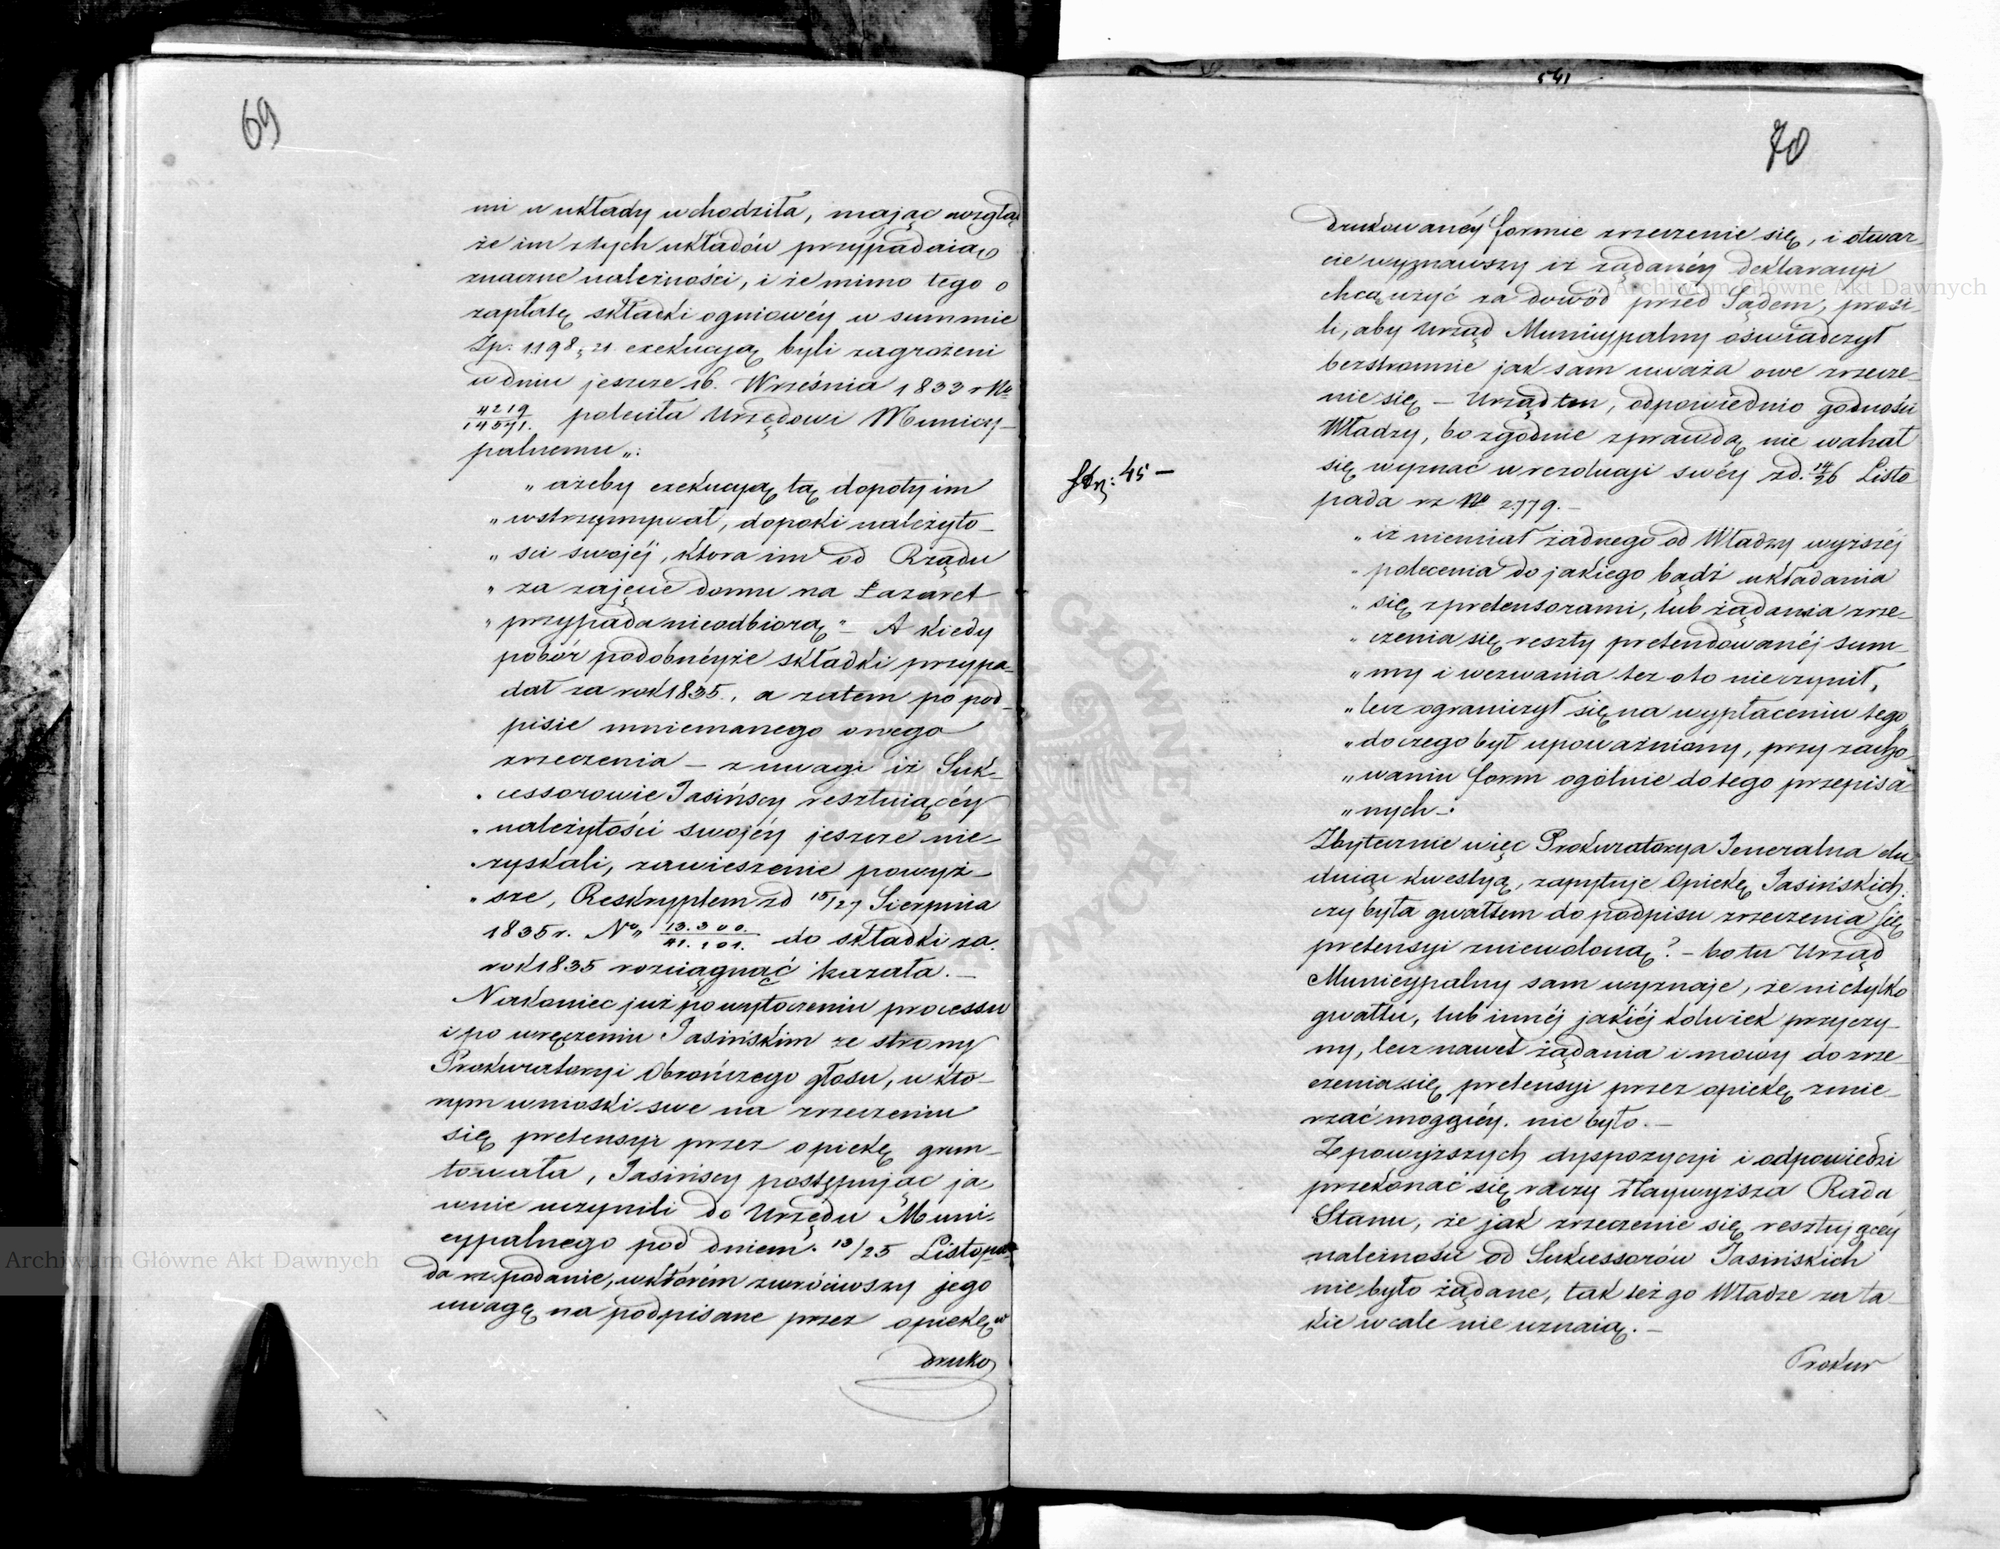 69
mi w układy wchodziła, mając wzgląd
że im z tych układów przypadaią
znaczne należności, i że mimo tego o
zapłatę składki ogniowéy w summie
Zp: 1198, 21 exekucyą byli zagrożeni
w dniu jeszcze 16. Września 1833 r No
4219/14571. poleciła Urzędowi Municy-
palnemu „:
„ ażeby exekucyą tą dopoty im
„ wstrzymywał, dopoki należyto-
„ ści swojéj, ktora im od Rządu
„ za zajęcie domu na Łazaret
„ przypada nieodbiorą" – A kiedy
pobór podobnéyże składki przypa-
dał za rok 1835., a zatem po pod-
pisie mniemanego owego
zrzeczenia – z uwagi iż Suk-
„ cessorowie Jasińscy resztuiącéy
„ należytości swojéy jeszcze nie-
„ zyskali, zawieszenie powyż-
„ sze, Reskryptem zd 15/27 Sierpnia
1835 r. No„ 13.300./41.101. do składki za
rok 1835 rozciągnąć kazała. –
Nakoniec już po wytoczeniu processu
i po wręczeniu Jasińskim ze strony
Prokuratoryi Obrończego głosu, w któ-
rym wnioski swe na zrzeczeniu
się pretensyi przez opiekę grun-
towała, Jasińscy postępując ja-
wnie uczynili do Urzędu Muni-
cypalnego pod dniem 13/25 Listopa-
da rz podanie, w którém zwróciwszy jego
uwagę na podpisane przez opiekę w
druko
541
70
drukowanéy formie zrzeczenie się, i otwar-
cie wyznawszy iż żądanéy deklaracyi
chcą użyć za dowód przed Sądem, prosi-
li, aby Urząd Municypalny oświadczył
bezstronnie jak sam uważa owe zrzecze-
nie się – Urząd ten, odpowiednio godności
Władzy, bo zgodnie z prawdą nie wahał
się wyznać w rezolucyi swéy zd. 14/26 Listo
pada rz No 2779. –
Str: 45 –
„ iż niemiał żadnego od Władzy wyższéj
„ polecenia do jakiego bądź układania
„ się z pretensorami, lub żądania zrze-
„ czenia się reszty pretendowanéj sum-
„ my i wezwania też o to nie czynił,
„ lecz ograniczył się na wypłaceniu tego
„ do czego był upoważniony, przy zacho-
„ waniu form ogólnie do tego przepisa-
„ nych –:
Zbytecznie więc Prokuratorya Jeneralna
kwestyą, zapytuje Opiekę Jasińskich,
czy była gwałtem do podpisu zrzeczenia się
pretensyi zniewoloną? – bo tu Urząd
Municypalny sam wyznaje, że nietylko
gwałtu, lub innéj jakiéj kolwiek przyczy-
ny, lecz nawet żądania i mowy do zrze-
czenia się pretensyi przez opiekę zmie-
rzać mogącéy, nie było. –
Z powyższych dyspozycyi i odpowiedzi
przekonać się raczy Naywyższa Rada
Stanu, że jak zrzeczenie się resztującéy
należności od Sukcessorów Jasińskich
nie było żądane, tak też go Władze za ta-
kie wcale nie uznaią. –
Prokur
Archiwum Główne Akt Dawnych
Archiwum Główne Akt Dawnych